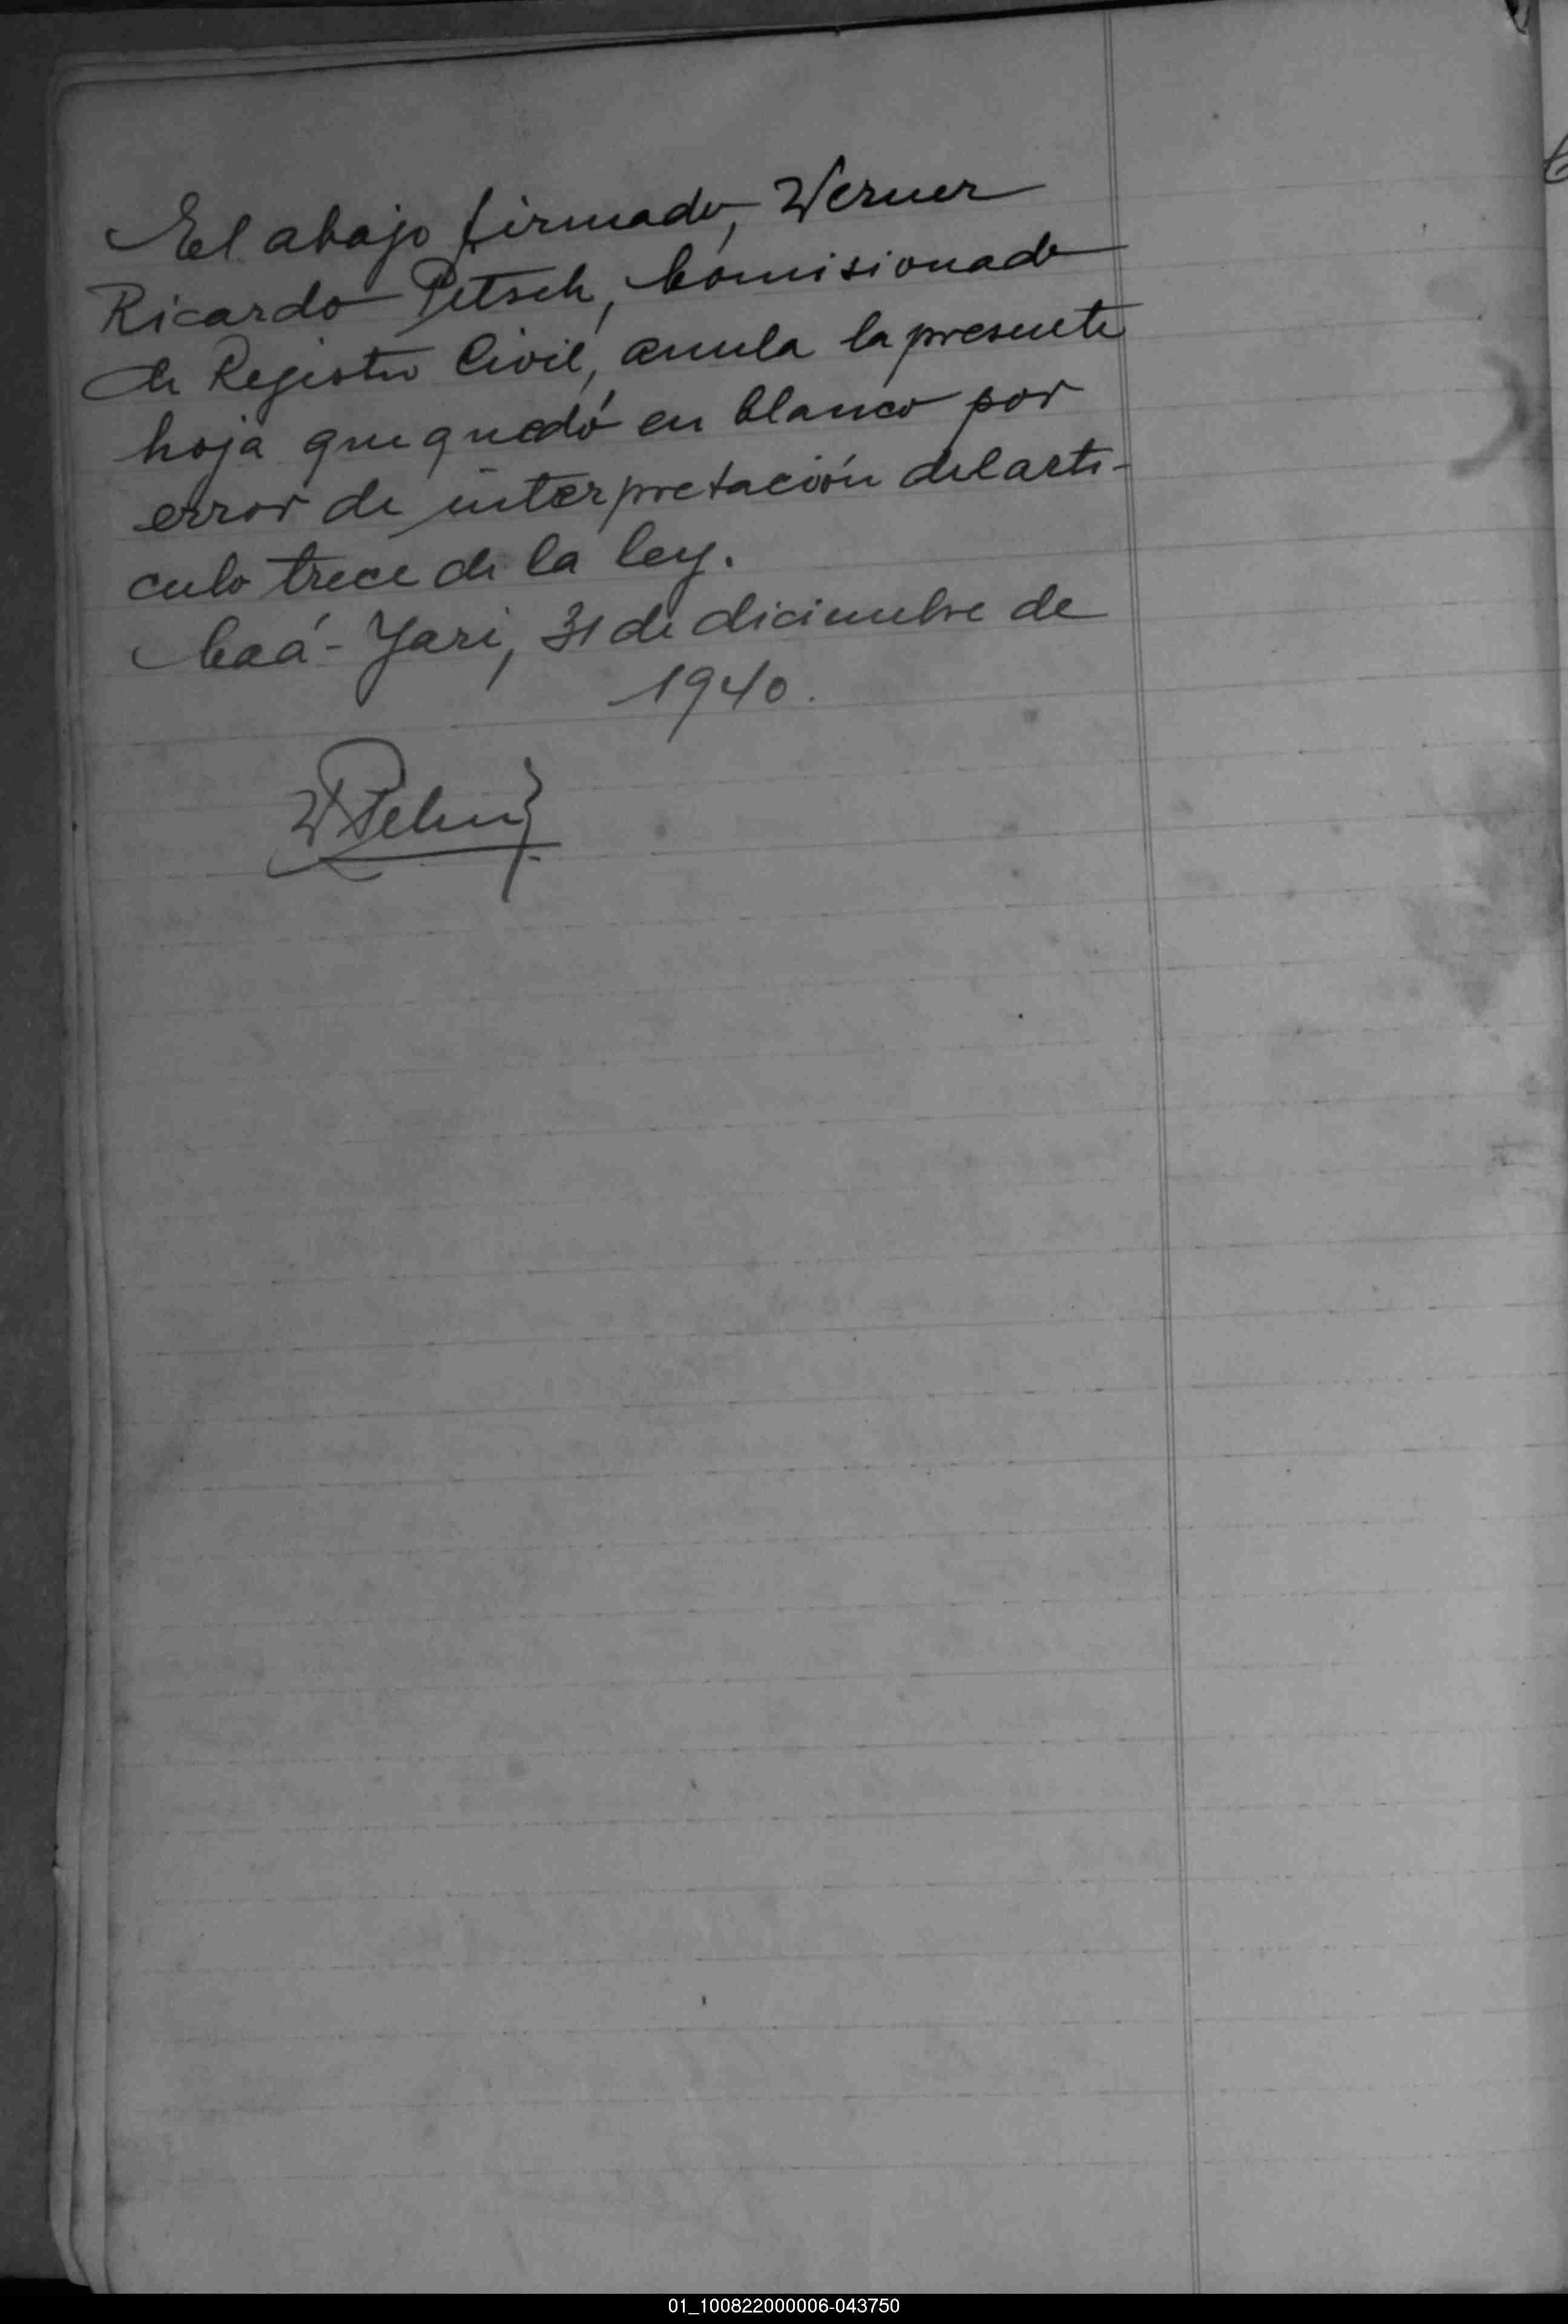 El abajo firmado, Werner
Ricardo Petsch, Comisionado
de Registro Civil, anula la presente
hoja que quedó en blanco por
error de interpretación del arti-
culo trece de la ley.
Caá-Yari, 31 de diciembre de
1940.
01_100822000006-043750